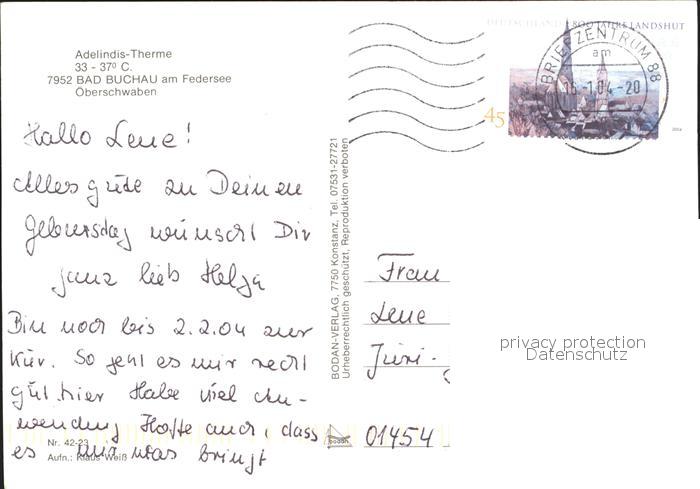 Adelindis-Therme
33 - 37⁰ C.
7952 BAD BUCHAU am Federsee
Oberschwaben
Hallo Lene!
Alles gute zu Deinen
Geburtstag wünscht Dir
ganz lieb Helga
Bin noch bis 2.2.04 zur
Kur. So geht es mir recht
gut hier Habe viel An-
wendung Hoffe auch dass
es was bringt
Nr. 42-23
Aufn.: Klaus Weiß
BODAN-VERLAG, 7750 Konstanz, Tel. 07531-27721
Urheberrechtlich geschützt, Reproduktion verboten
bodan
DEUTSCHLAND 800 JAHRE LANDSHUT
45
2004
BRIEFZENTRUM 88
am
1.04-20
Frau
Lene
01454
privacy protection
Datenschutz